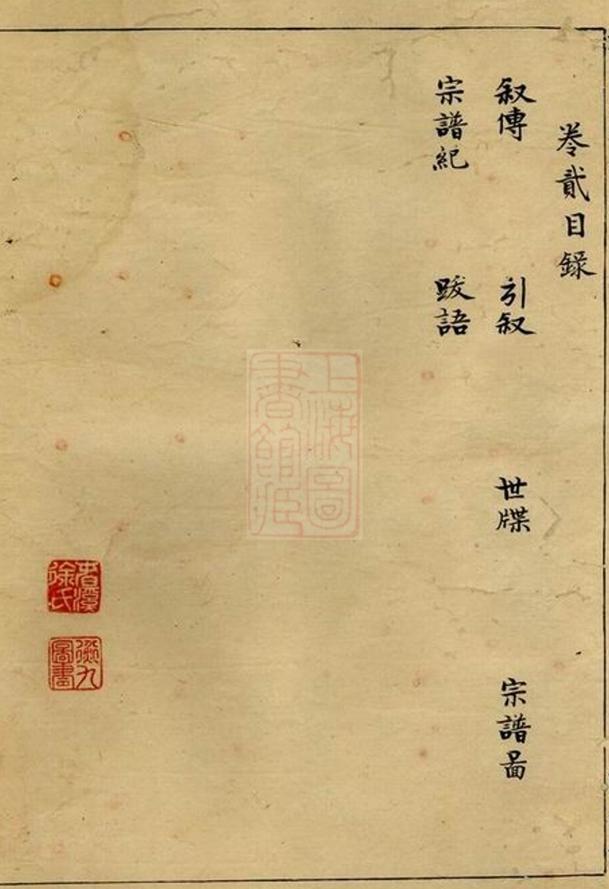 卷貳目錄
叙傳 引叙 世牒 宗譜啚
宗譜紀 跋語
上海圖書館藏
徐氏
九
圖書